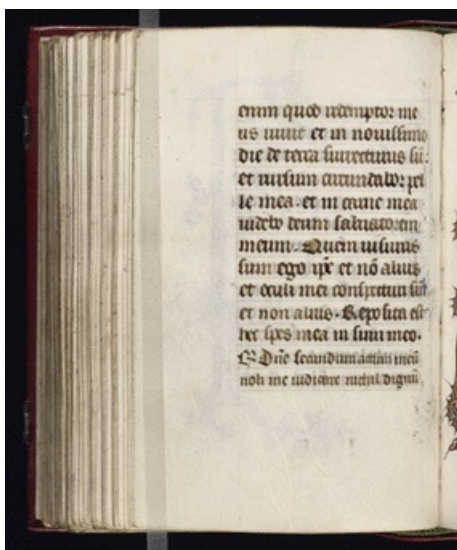 enim quod redemptor me
us uiuit et in nouissimo
die de terra surrecturus sū:
et rursum circundabor pel
le mea. et in carne mea
uidebo deum saluatorem
meum. Quem uisurus
sum ego ip̄e et nō alius
et oculi mei conspecturi sūt
et non alius. Reposita est
hec spes mea in sinu meo.
℟ Dn̄e secundum actum meū
noli me iudicare nichil dignū